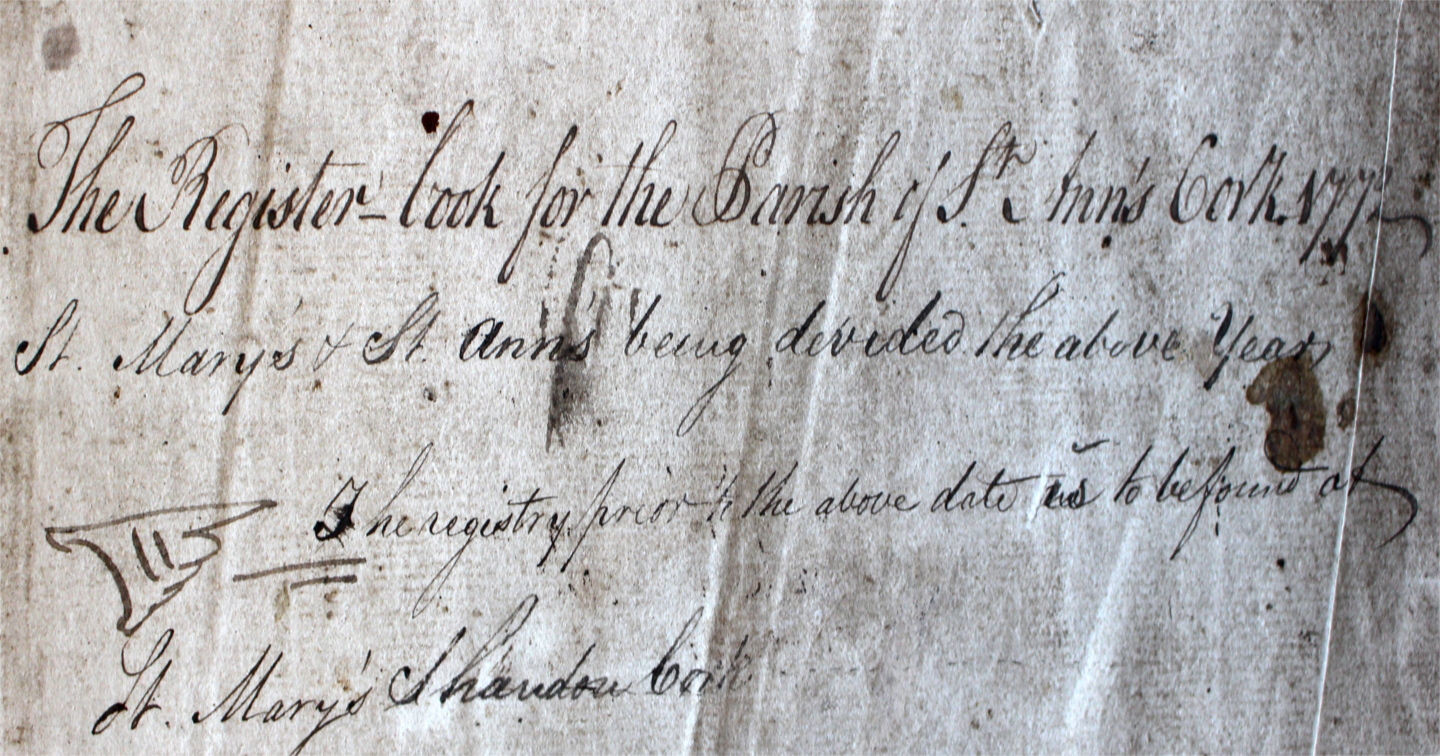 The Register-book for the Parish of St. Ann's Cork. 1772
St. Mary's & St. Ann's being devided the above Year
The registry prior to the above date is to be found at
St. Mary's Shandon Cork